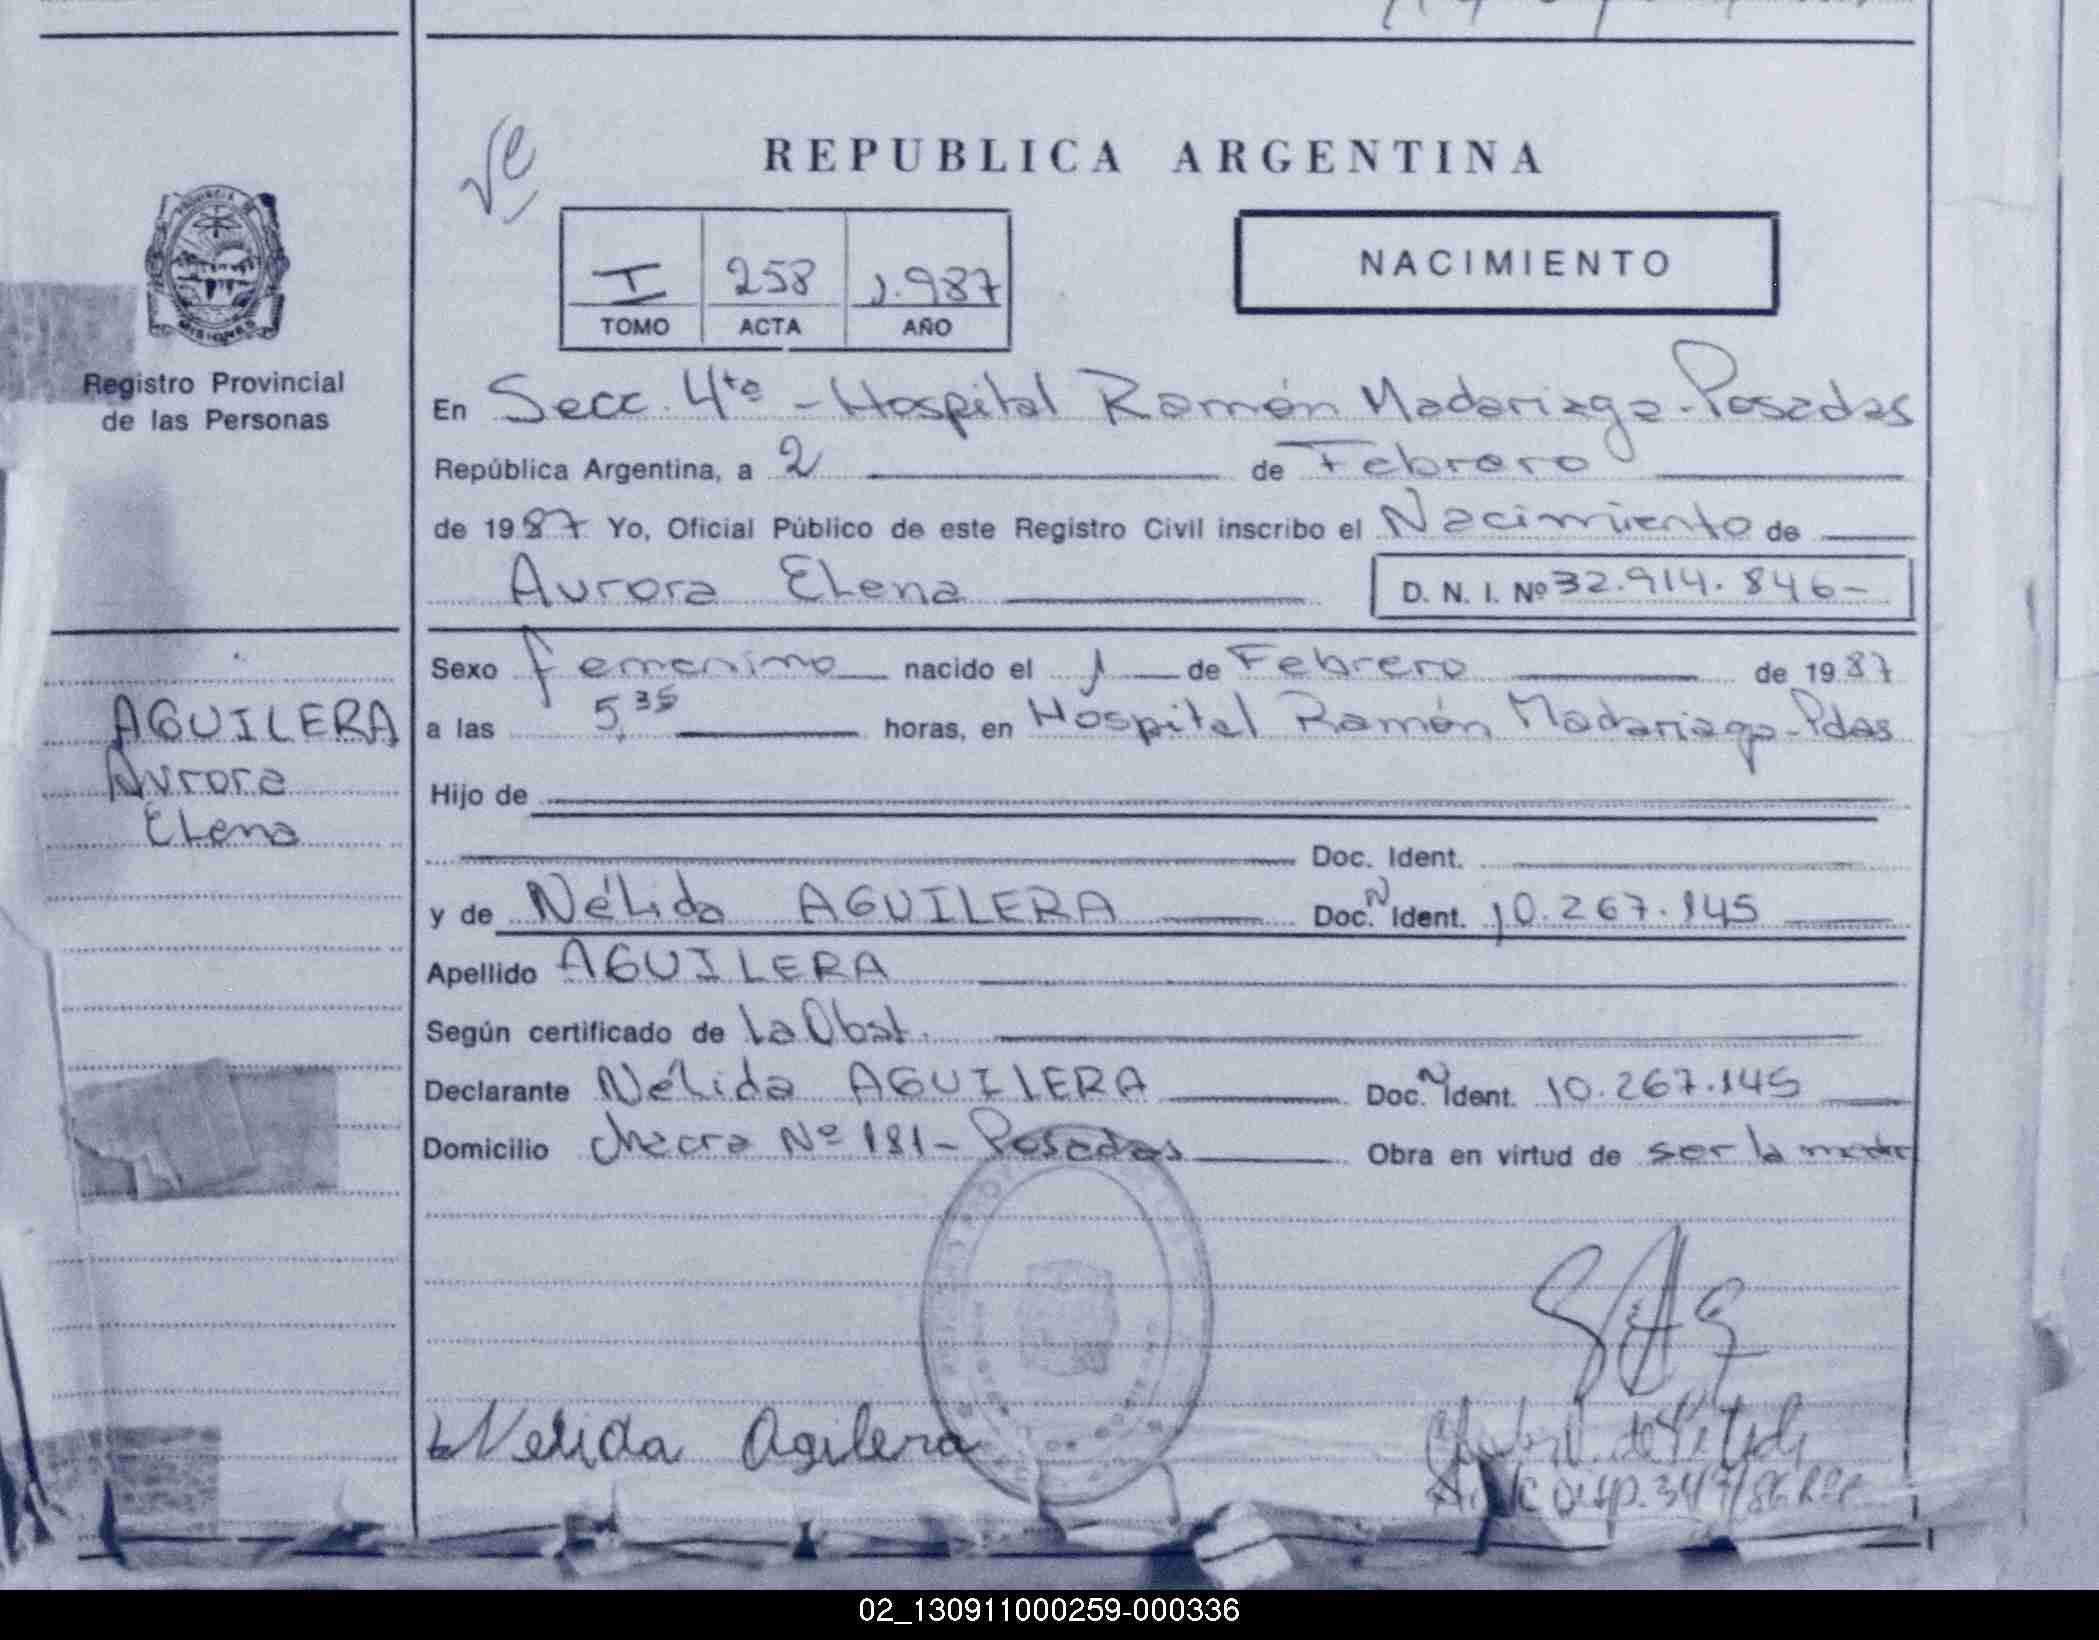 REPUBLICA ARGENTINA
PROVINCIA DE
MISIONES
Registro Provincial
de las Personas
I 258 1.987
TOMO ACTA AÑO
NACIMIENTO
En Secc. 4ta - Hospital Ramón Madariaga - Posadas
República Argentina, a 2 de Febrero
de 1987 Yo, Oficial Público de este Registro Civil inscribo el Nacimiento de
Aurora Elena D. N. I. Nº 32.914.846-
Sexo femenino nacido el 1 de Febrero de 1987
a las 5,35 horas, en Hospital Ramón Madariaga - Pdas
Hijo de
Doc. Ident.
y de Nélida AGUILERA Doc. N Ident. 10.267.145
Apellido AGUILERA
Según certificado de la Obst.
Declarante Nélida AGUILERA Doc. N Ident. 10.267.145
Domicilio chacra Nº 181 - Posadas Obra en virtud de ser la madre
AGUILERA
Aurora
Elena
Nelida Agilera
02_130911000259-000336